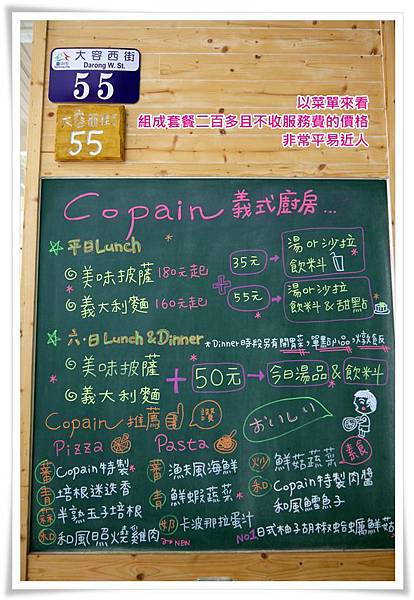 大容西街
Darong W. St.
55
大容西街
55
以菜單來看
組成套餐二百多且不收服務費的價格
非常平易近人
Copain 義式廚房...
平日Lunch
美味披薩 180元起
義大利麵 160元起
+
35元 → 湯or沙拉 飲料
55元 → 湯or沙拉 飲料&甜點
六.日Lunch & Dinner
*Dinner時段另有開胃菜,單點小品,燉飯
美味披薩
義大利麵
+ 50元 → 今日湯品 & 飲料
Copain推薦 讚
おいしい
Pizza
蕃 Copain特製
青 培根迷迭香
蒜 半熟玉子培根
和 和風照燒雞肉
NEW
Pasta
蕃 漁味風海鮮
青 鮮蝦蔬菜
奶 卡波那拉蛋汁
炒 鮮菇蔬菜 素食
和 Copain特製肉醬
和風鱈魚子
NO1 日式柚子胡椒蛤蠣鮮菇